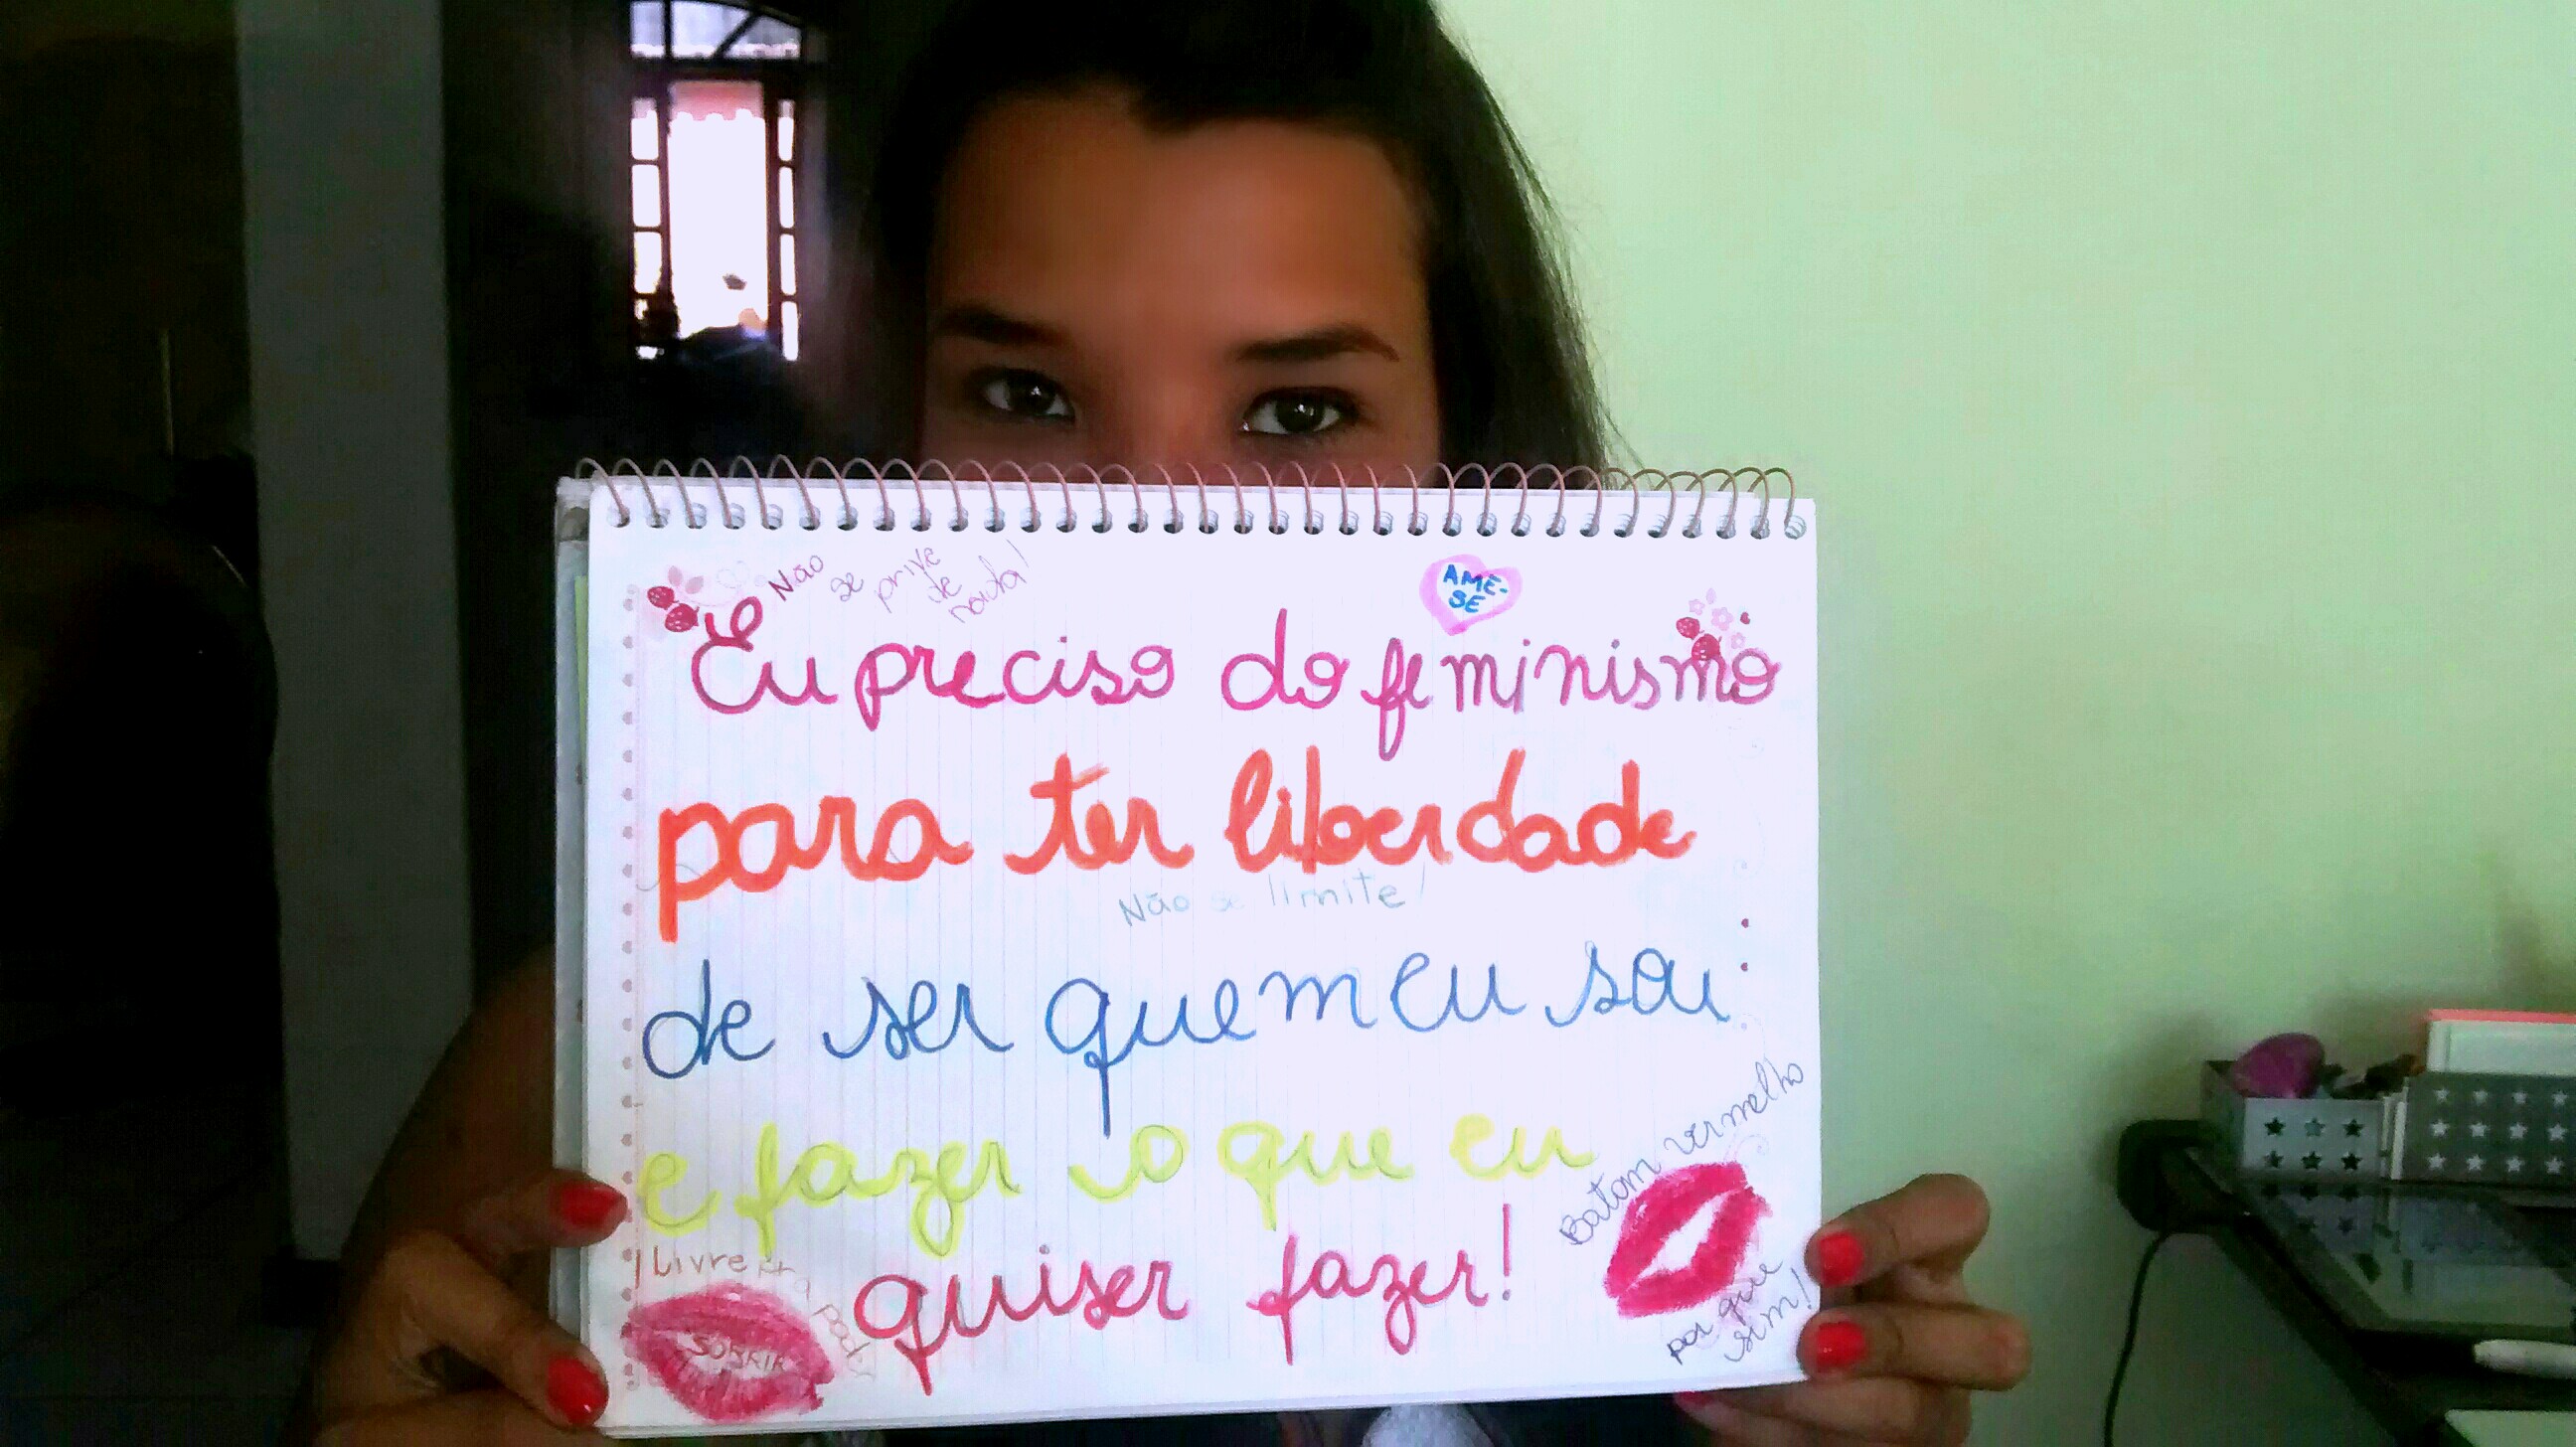 Não
se prive
de
nada!
AME-
SE
Eu preciso do feminismo
para ter liberdade
Não se limite!
de ser quem eu sou
e fazer o que eu
quiser fazer!
Batom vermelho
por que
sim!
Livre
SORRIR